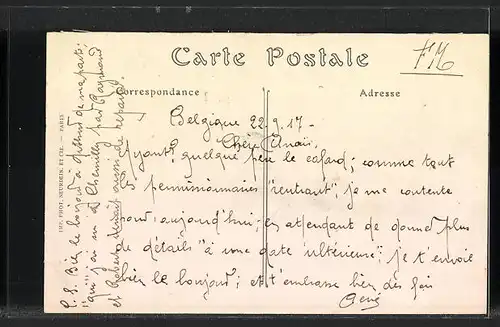 Carte Postale
FM
Correspondance
Adresse
Belgique 22-9-17-
Chère Anaïs,
Ayant quelque peu le cafard; comme tout
permissionnaires "rentrant", je me contente
pour aujourd'hui; en attendant de donner plus
de détails "à une date ultérieure"; je t'envoie
bien le bonjour; et t'embrasse bien des fois
René
P.S. Bien le bonjour à de ma part;
qui j'ai vu à Chemillé, par Raymond
et Robert devait aussi de repartir.
IMP. PHOT. NEURDEIN ET CIE. — PARIS